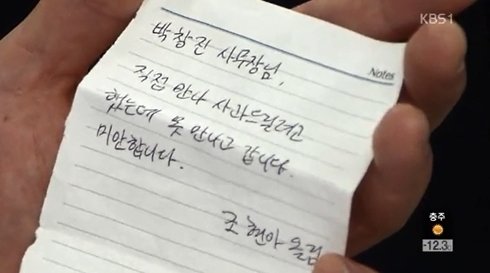 KBS1
박창진 사무장님,
Notes
직접 만나 사과드릴려고
했는데 못 만나고 갑니다.
미안합니다.
조현아 올림
충주
-12.3